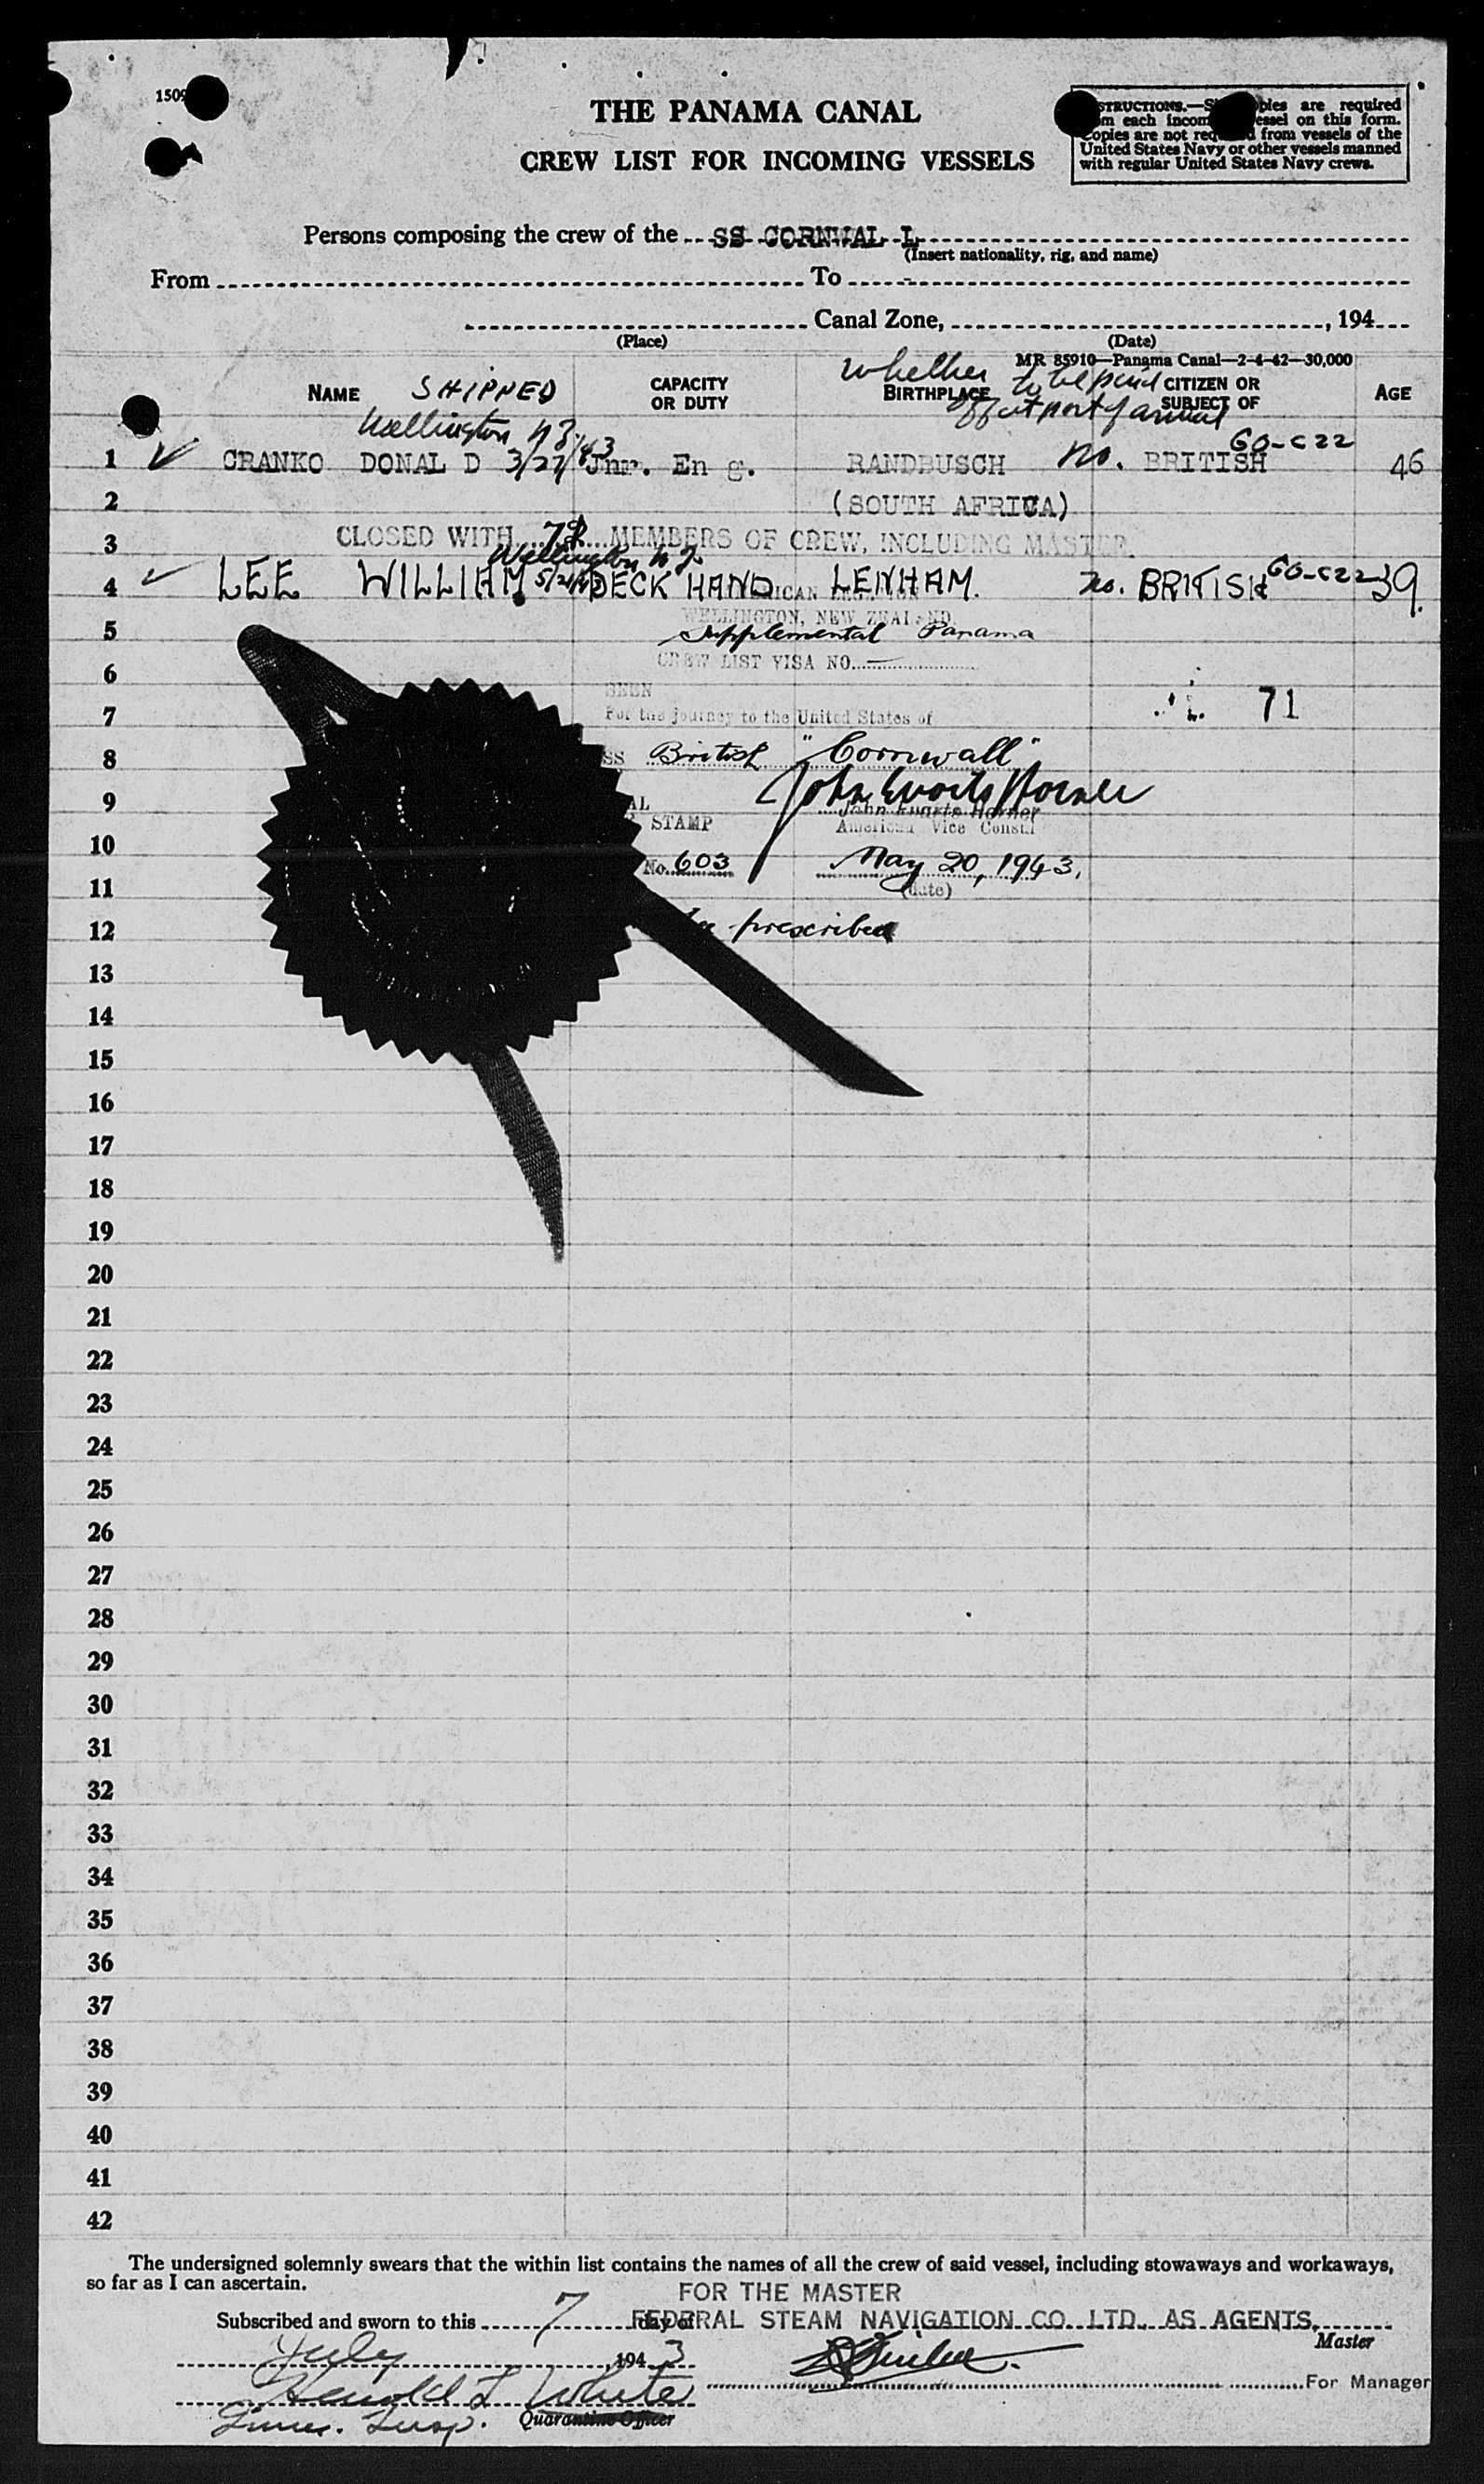 1509
THE PANAMA CANAL
CREW LIST FOR INCOMING VESSELS
STRUCTIONS.—S pies are required
m each incom essel on this form.
Copies are not req d from vessels of the
United States Navy or other vessels manned
with regular United States Navy crews.
Persons composing the crew of the SS CORNWAL L
(Insert nationality, rig, and name)
From To
Canal Zone, , 194
(Place) (Date)
MR 85910—Panama Canal—2-4-42—30,000
whether to be paid
off at port of arrival
NAME SHIPPED CAPACITY OR DUTY BIRTHPLACE CITIZEN OR SUBJECT OF AGE
Wellington NZ GO-C22
1 CRANKO DONAL D 3/27/43 Jnr. En g. RANDBUSCH no. BRITISH 46
2 (SOUTH AFRICA)
3 CLOSED WITH MEMBERS OF CREW, INCLUDING MASTER.
Wellington NZ GO-C22
4 LEE WILLIAM DECK HAND LENHAM. no. BRITISH 39.
WELLINGTON, NEW ZEALAND
5 Supplemental Panama
CREW LIST VISA NO.
6
SEEN
7 For the journey to the United States of
71
8 SS British "Cornwall"
John Evarts Horner
9 AL John Evarts Horner
STAMP American Vice Consul
10 No. 603 May 20, 1943.
11 (date)
12 prescribed
13
14
15
16
17
18
19
20
21
22
23
24
25
26
27
28
29
30
31
32
33
34
35
36
37
38
39
40
41
42
The undersigned solemnly swears that the within list contains the names of all the crew of said vessel, including stowaways and workaways,
so far as I can ascertain.
FOR THE MASTER
Subscribed and sworn to this 7 day of FEDERAL STEAM NAVIGATION CO. LTD. AS AGENTS.
Master
July 1943
For Manager
Harold L White
Imm. Insp. Quarantine Officer